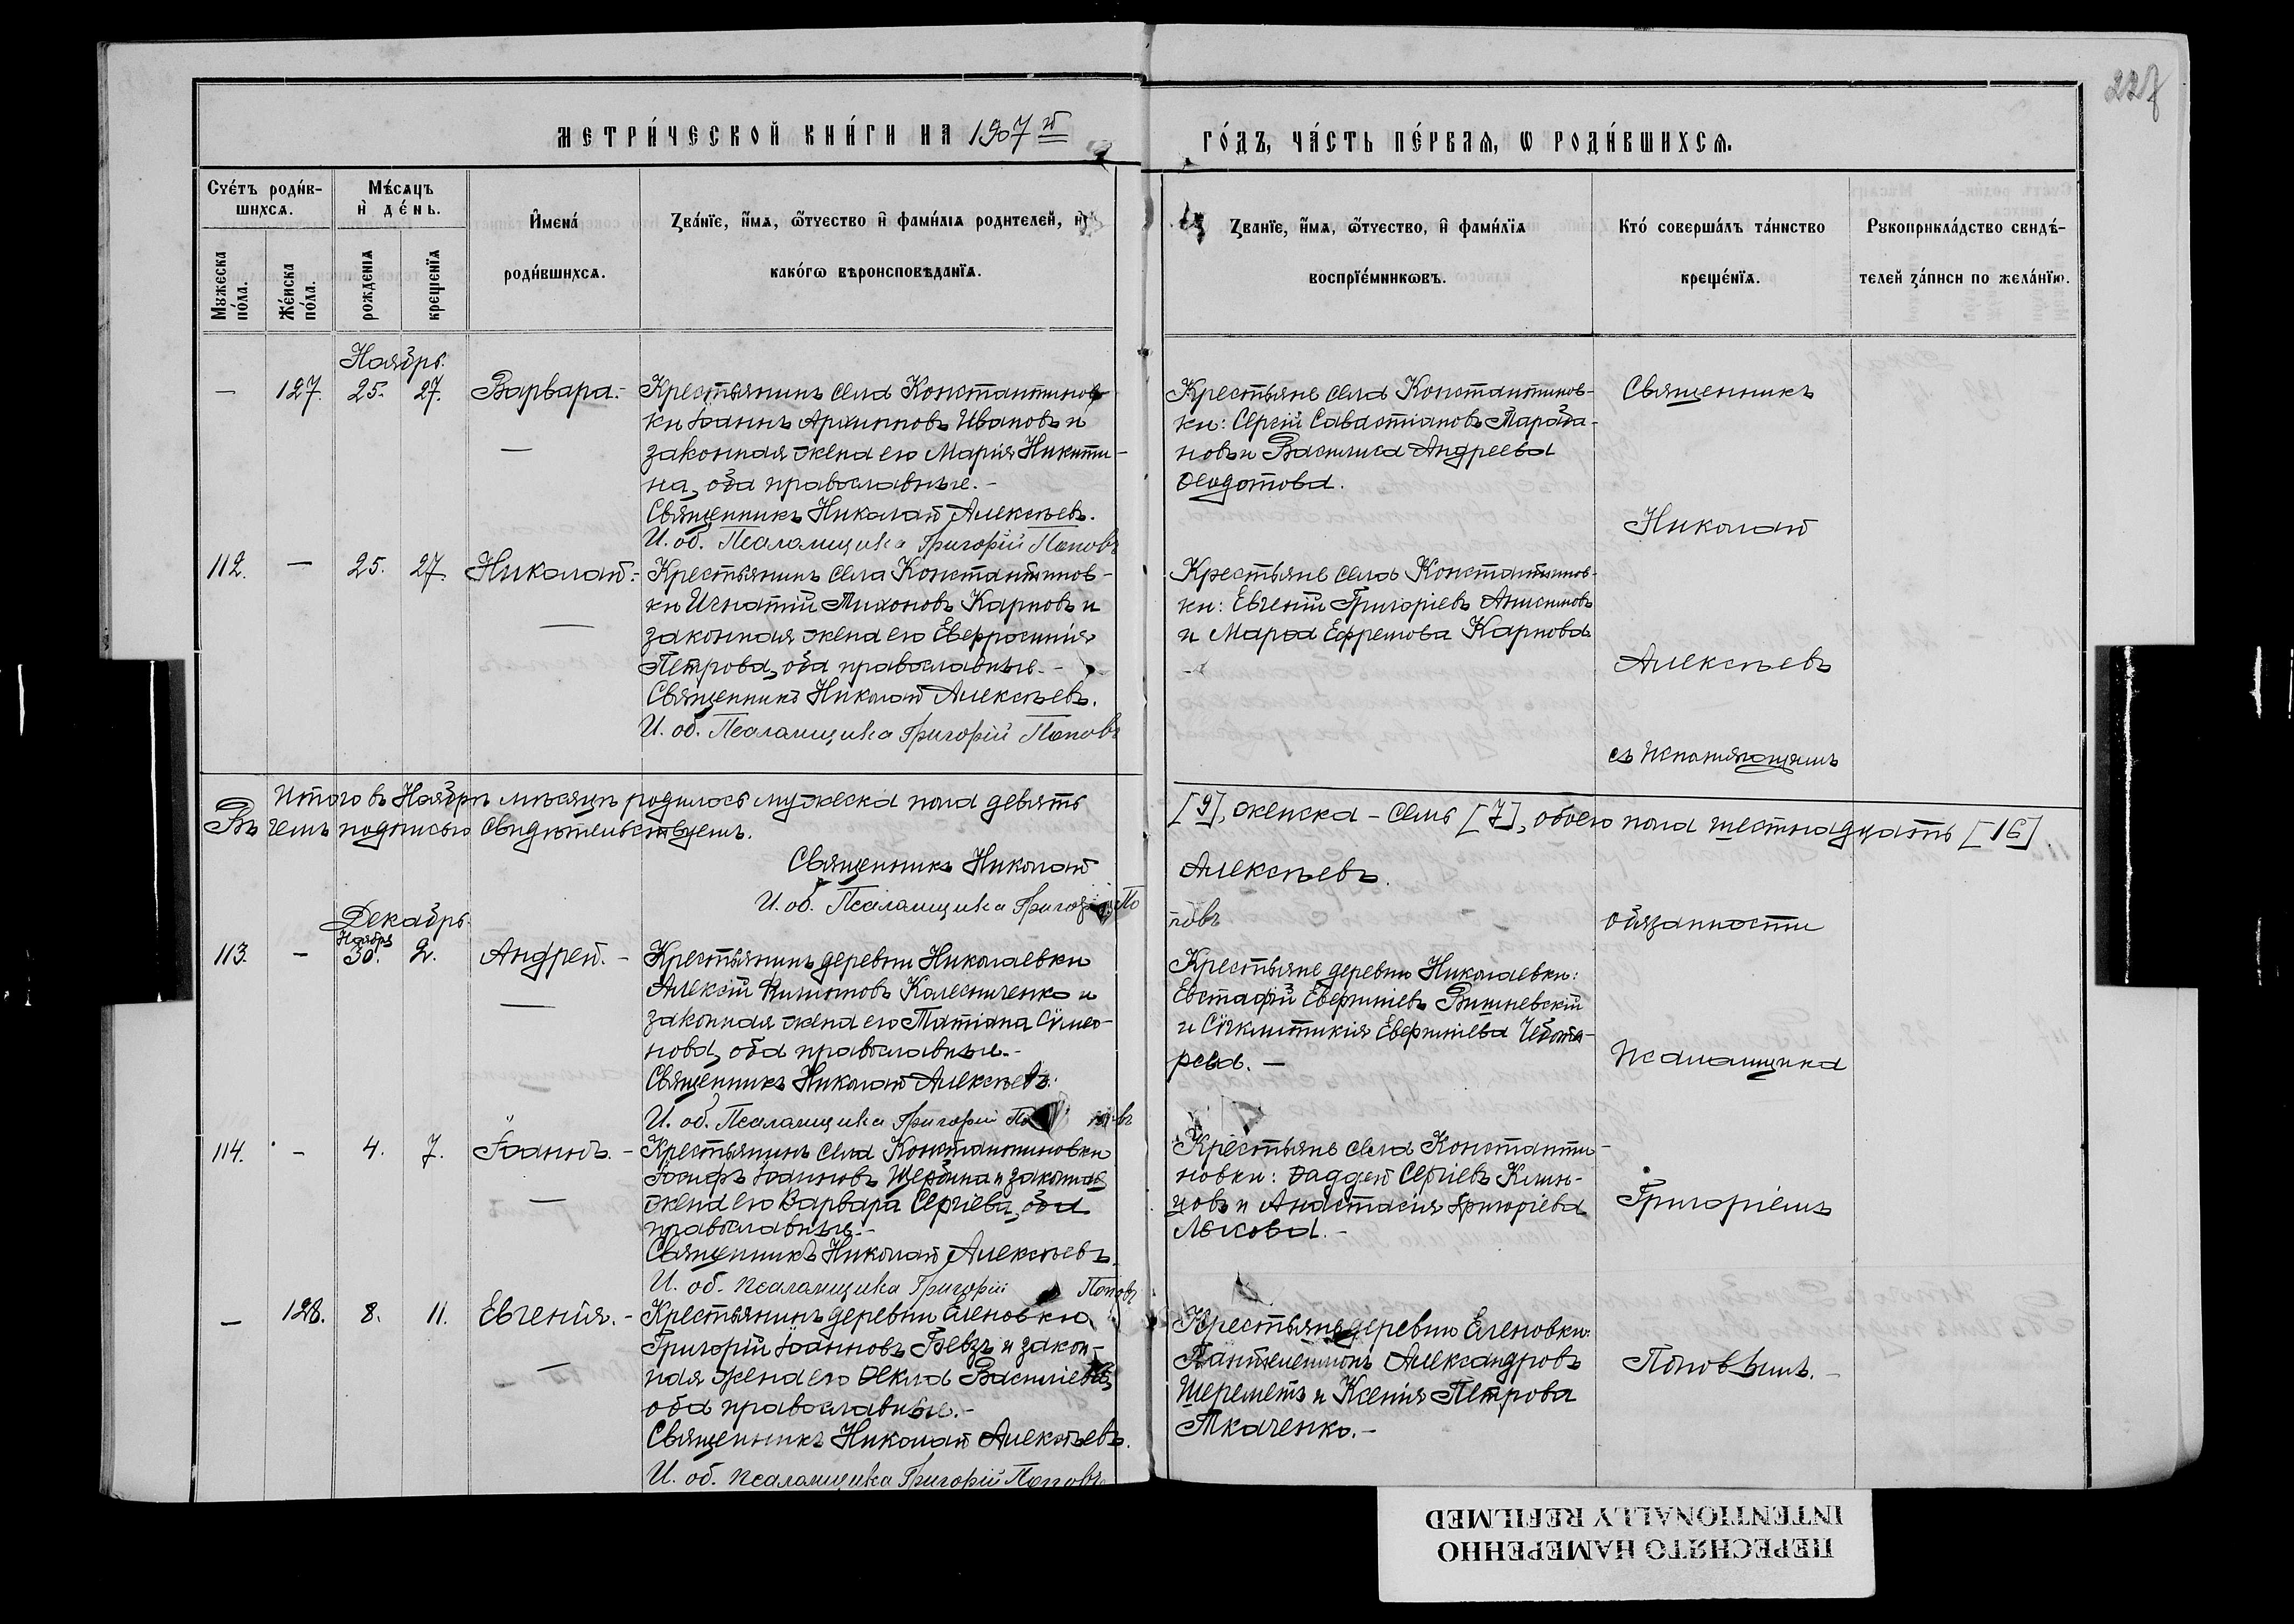 227
МЕТРИ́ЧЕСКОЙ КНИ́ГИ НА 1907 й
ГО́ДЪ, ЧА́СТЬ ПЕ́РВАѦ, Ѡ РОДИ́ВШИХСѦ.
Счéтъ роди́в-
шихсѧ.
Мѣ́сѧцъ
и҆ дéнь.
И҆мена́
роди́вшихсѧ.
Мꙋжеска
по́ла.
Жéнска
по́ла.
рождéнїѧ
крещéнїѧ
Зва́нїе, и҆́мѧ, ѻ҆́тчество и҆ фамѝлїѧ родителей, и҆
како́гѡ вѣроисповѣданїѧ.
Званїе, и҆́мѧ, ѻ҆́тчество, и҆ фамѝлїѧ
воспрїéмникѡвъ.
Кто́ соверша́лъ та́инство
крещéнїѧ.
Рꙋкоприкла́дство свидѣ́-
телей за́писи по жела́нїю.
Ноябрь.
— 127. 25. 27. Варвара. —
Крестьянинъ села Константинов-
ки Іоаннъ Архиповъ Ивановъ и
законная жена его Марія Никити-
на, оба православные. —
Священникъ Николай Алексѣевъ.
И. об. Псаломщика Григорій Поповъ
Крестьяне села Константинов-
ки: Сергій Савастіановъ Мараба-
новъ и Василиса Андреева
Ѳеодотова.
Священникъ
Николай
112. — 25. 27. Николай. —
Крестьянинъ села Константинов-
ки Игнатій Тихоновъ Карповъ и
законная жена его Евфросинія
Петрова, оба православные. —
Священникъ Николай Алексѣевъ.
И. об. Псаломщика Григорій Поповъ
Крестьяне села Константинов-
ки: Евгеній Григоріевъ Анисимовъ
и Марѳа Ефремова Карпова
Алексѣевъ
съ исполняющимъ
Итого въ Ноябрѣ мѣсяцѣ родилось мужеска пола девять
[9], женска – семь [7], обоего пола шестнадцать [16].
Въ чемъ подписью свидѣтельствуемъ.
Священникъ Николай
Алексѣевъ.
И. об. Псаломщика Григорій По
повъ
обязанности
Декабрь.
Ноября
113. — 30. 2. Андрей. —
Крестьянинъ деревни Николаевки
Алексій Филиповъ Колесниченко и
законная жена его Татіана Сѵмео-
нова, оба православные. —
Священникъ Николай Алексѣевъ.
И. об. Псаломщика Григорій Поповъ
Крестьяне деревни Николаевки:
Евстафій Евфиміевъ Вишневскій
и Сѵнклитикія Евфиміева Чебота-
рева. —
псаломщика
114. — 4. 7. Іоаннъ. —
Крестьянинъ села Константиновки
Іосифъ Іоанновъ Щербина и законная
жена его Варвара Сергіева, оба
православные. —
Священникъ Николай Алексѣевъ.
И. об. псаломщика Григорій Поповъ
Крестьяне села Константи-
новки: Ѳаддей Сергіевъ Клин-
цовъ и Анастасія Григоріева
Лескова. —
Григоріемъ
— 128. 8. 11. Евгенія. —
Крестьянинъ деревни Еленовки
Григорій Іоанновъ Бевзъ и закон-
ная жена его Ѳекла Василіева,
оба православные. —
Священникъ Николай Алексѣевъ.
И. об. псаломщика Григорій Поповъ
Крестьяне деревни Еленовки:
Пантелеимонъ Александровъ
Шереметъ и Ксенія Петрова
Ткаченко. —
Поповымъ. —
ПЕРЕСНЯТО НАМЕРЕННО
INTENTIONALLY REFILMED